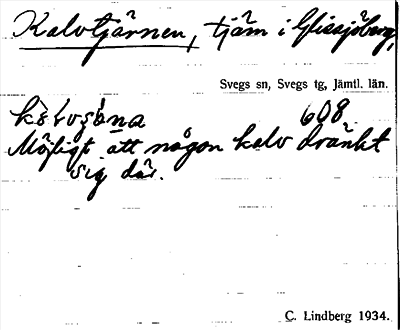 Kalvtjärnen, tjärn i Glissjöberg,
Svegs sn, Svegs tg, Jämtl. län.
608.
Möjligt att någon kalv dränkt
sig där.
C. Lindberg 1934.